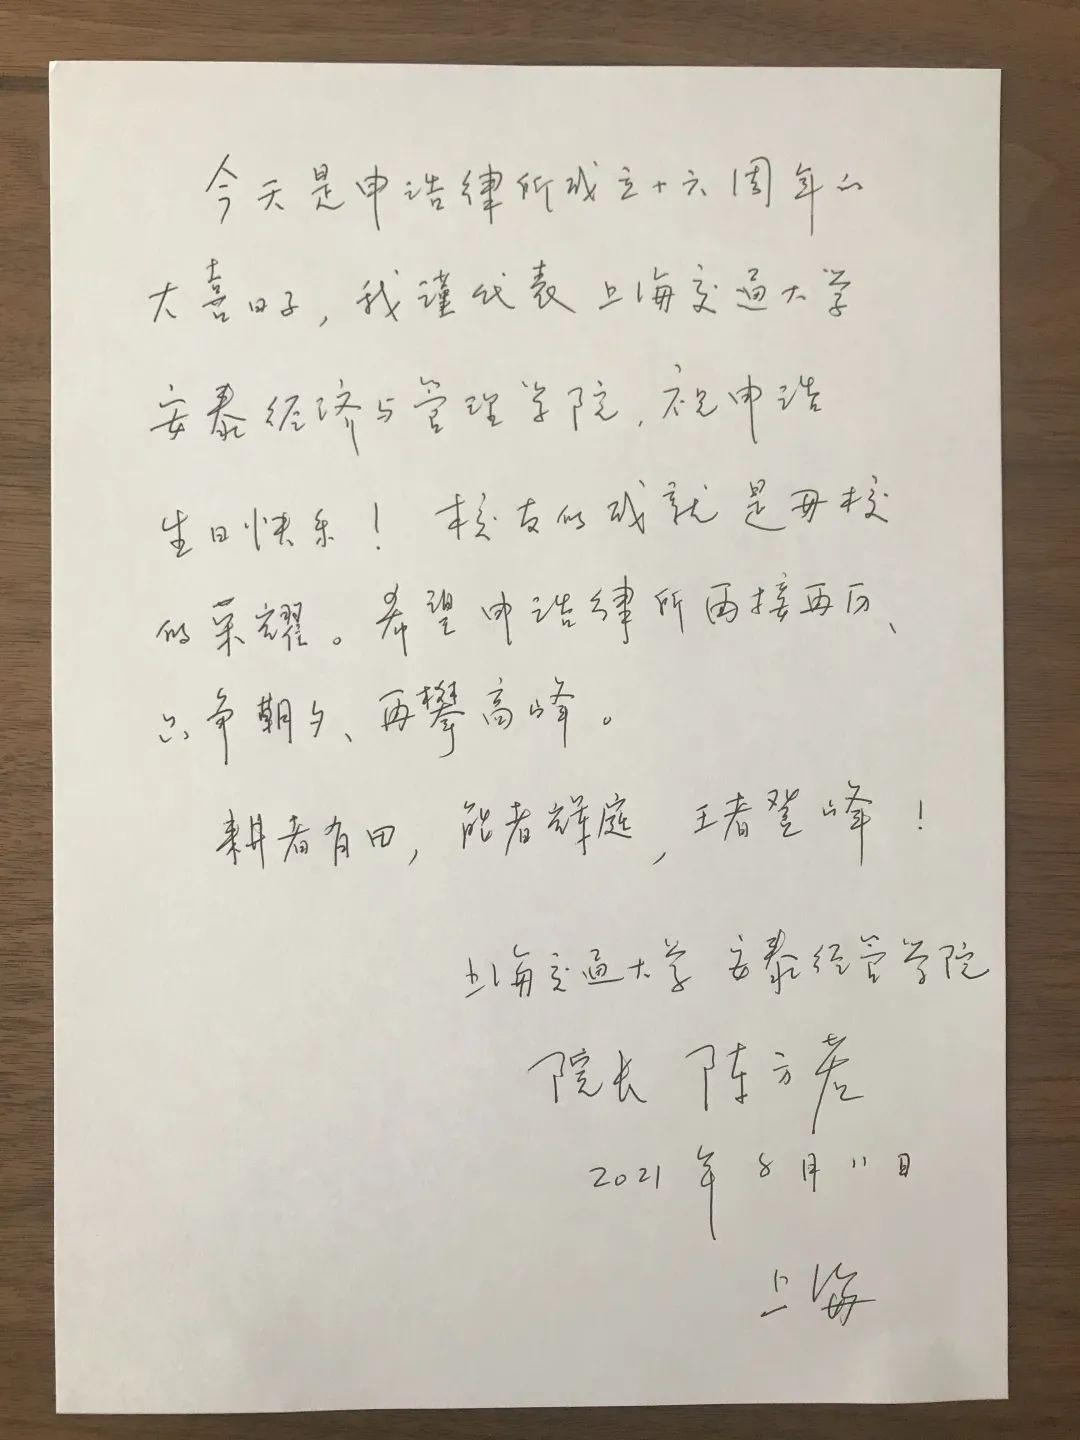 今天是申浩律所成立十六周年的
大喜日子，我谨代表上海交通大学
安泰经济与管理学院，祝申浩
生日快乐！校友的成就是母校
的荣耀。希望申浩律所再接再厉、
只争朝夕、再攀高峰。
耕者有田，能者辉庭，王者登峰！
上海交通大学 安泰经管学院
院长 陈方若
2021年8月11日
上海